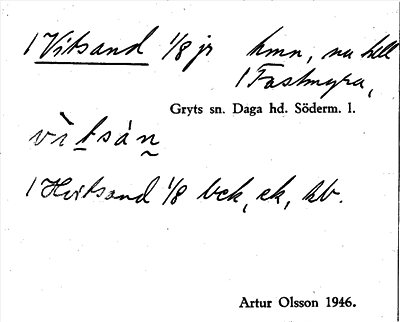 / Vitsand 1/8 jr hmn, nu till
/ Fastmyra,
Gryts sn. Daga hd. Söderm. l.
vìtsán
/ Hvitsand 1/8 bck, ek, kb.
Artur Olsson 1946.